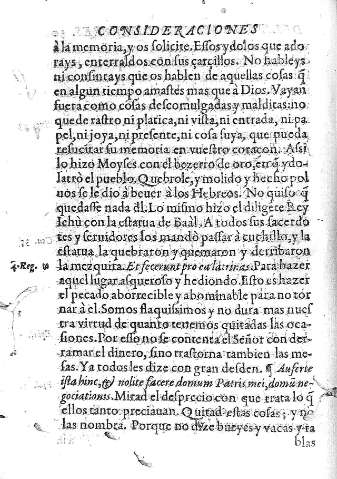 CONSIDERACIONES
à la memoria, y os solicite. Essos ydolos que ado
rays, enterraldos con sus çarcillos. No hableys
ni consintays que os hablen de aquellas cosas q̃
en algun tiempo amastes mas que à Dios. Vayan
fuera como cosas descomulgadas y malditas: no
que de rastro ni platica, ni vista, ni entrada, ni pa
pel, ni joya, ni presente, ni cosa suya, que pueda
resucitar su memoria en vuestro coraçon. Assi
lo hizo Moyses con el bezerro de oro, en q̃ ydo-
latrò el pueblo. Quebrole, y molido y hecho pol
uos se le dio à beuer à los Hebreos. No quiso q̃
quedasse nada dl. Lo mismo hizo el diligēte Rey
Iehù con la estatua de Baàl. A todos sus sacerdo
tes y seruidores los mandò passar à cuchillo, y la
estatua la quebraron y quemaron y derribaron
4. Reg. 10
la mezquita. Et fecerunt pro ea latrinas. Para hazer
aquel lugar asqueroso y hediondo. Esto es hazer
el pecado aborrecible y abominable para no tor
nar à el. Somos flaquissimos y no dura mas nues
tra virtud de quanto tenemos quitadas las oca-
siones. Por esso no se contenta el Señor con der-
ramar el dinero, sino trastorna tambien las me-
sas. Ya todos les dize con gran desden. ¶ Auferte
ista hinc, & nolite facere domum Patris mei, domū ne-
gociationis. Mirad el desprecio con que trata lo q̃
ellos tanto preciauan. Quitad estas cosas, y no
las nombra. Porque no dize bueyes y vacas y ta
blas